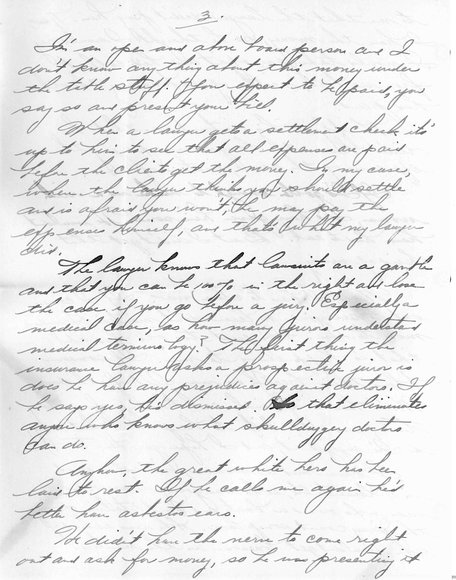 3.
I'm an open and above board person and I
don't know anything about this money under
the table stuff. If you expect to be paid, you
say so and present your bill.
When a lawyer gets a settlement check, it's
up to him to see that all expenses are paid
before the clients get the money. In my case,
where the lawyer thinks you should settle
and is afraid you won't, he may pay the
expenses himself, and that's what my lawyer
did.
The lawyer knows that lawsuits are a gamble
and that you can be 100% in the right and lose
the case if you go before a jury. Especially a
medical case, as how many jurors understand
medical terminology? The first thing the
insurance lawyer asks a prospective juror is
does he have any prejudices against doctors. If
he says yes, he's dismissed. So that eliminates
anyone who knows what skullduggery doctors
can do.
Anyhow, the great white hero has been
laid to rest. If he calls me again he'd
better have asbestos ears.
He didn't have the nerve to come right
out and ask for money, so he was presenting it